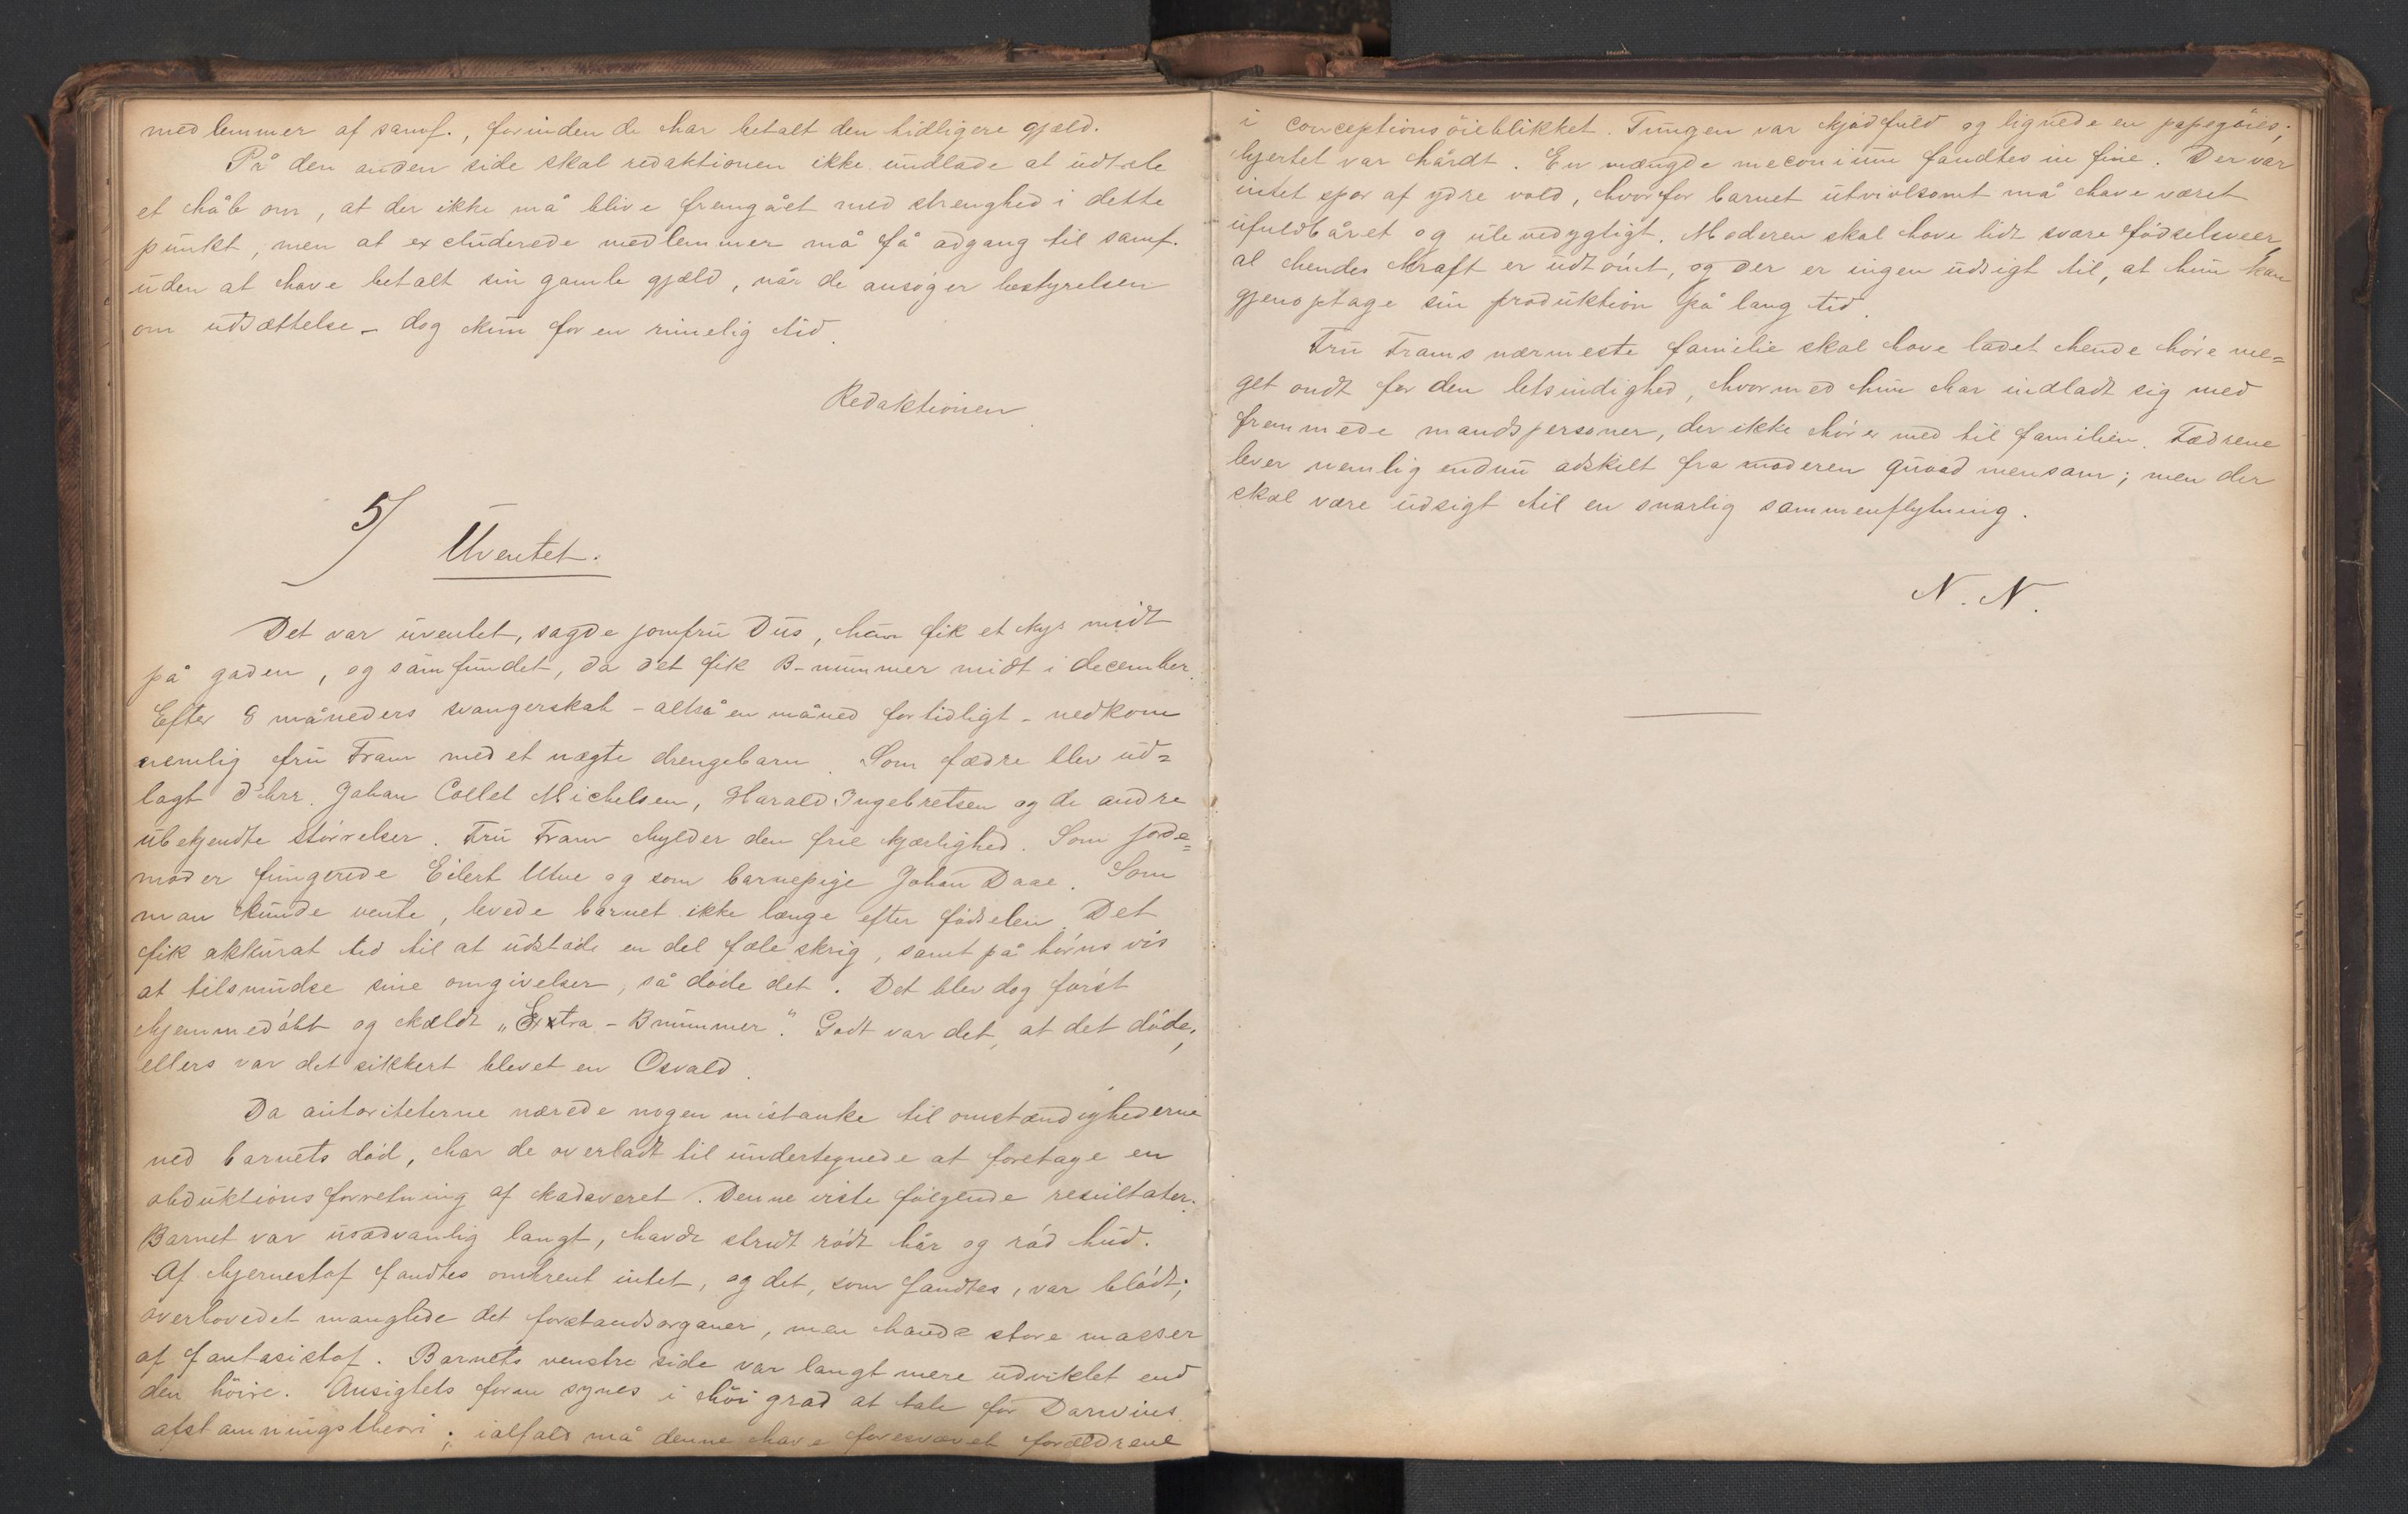 medlemmer af samf., forinden de har betalt den tidligere gjæld.
På den anden side skal redaktionen ikke undlade at udtale
et håb om, at der ikke må blive fremgået med strenghed i dette
punkt, men at excluderede medlemmer må få adgang til samf.
uden at have betalt sin gamle gjæld, når de ansøger bestyrelsen
om udsættelse - dog kun for en rimelig tid.
Redaktionen
5/
Uventet.
Det var uventet, sagde jomfru Dus, hun fik et kys midt
på gaden, og samfundet, da det fik B-nummer midt i december.
Efter 8 måneders svangerskab - altså en måned for tidligt - nedkom
nemlig fru Fram med et uægte drengebarn. Som fædre blev ud=
lagt d'hrr. Johan Collet Michelsen, Harald Ingebretsen og de andre
ubekjendte størrelser. Fru Fram hylder den frie kjærlighed. Som jorde=
moder fungerede Eilert Utne og som barnepige Johan Daae. Som
man kunde vente, levede barnet ikke længe efter fødselen. Det
fik akkurat tid til at udstøde en del fæle skrig, samt på børns vis
at tilsmudse sine omgivelser, så døde det. Det blev dog først
hjemmedøbt og kaldt „Extra-Bnummer“. Godt var det, at det døde;
ellers var det sikkert blevet en Osvald.
Da autoriteterne nærede nogen mistanke til omstændighederne
ved barnets død, har de overladt til undertegnede at foretage en
obduktionsforretning af kadaveret. Denne viste følgende resultater:
Barnet var usædvanlig langt, havde stridt rødt hår og rød hud.
Af hjernestof fandtes omtrent intet, og det, som fandtes, var blødt;
overhovedet manglede det forstandsorganer, men havde store masser
af fantasistof. Barnets venstre side var langt mere udviklet end
den høire. Ansigtets form synes i høi grad at tale for Darwins
afstamningstheori; ialfald må denne have foresvævet forældrene
i conceptionsøieblikket. Tungen var kjødfuld og lignede en papegøies;
hjertet var hårdt. En mængde meconium fandtes in fine. Der var
intet spor af ydre vold, hvorfor barnet utvivlsomt må have været
ufuldbåret og ulevedygtigt. Moderen skal have lidt svare fødselsveer,
al hendes kraft er udtømt, og der er ingen udsigt til, at hun kan
gjenoptage sin produktion på lang tid.
Fru Frams nærmeste familie skal have ladet hende høre me=
get ondt for den letsindighed, hvormed hun har indladt sig med
fremmede mandspersoner, der ikke hører med til familien. Fædrene
lever nemlig endnu adskilt fra moderen quoad mensam; men der
skal være udsigt til en snarlig sammenflytning.
N. N.